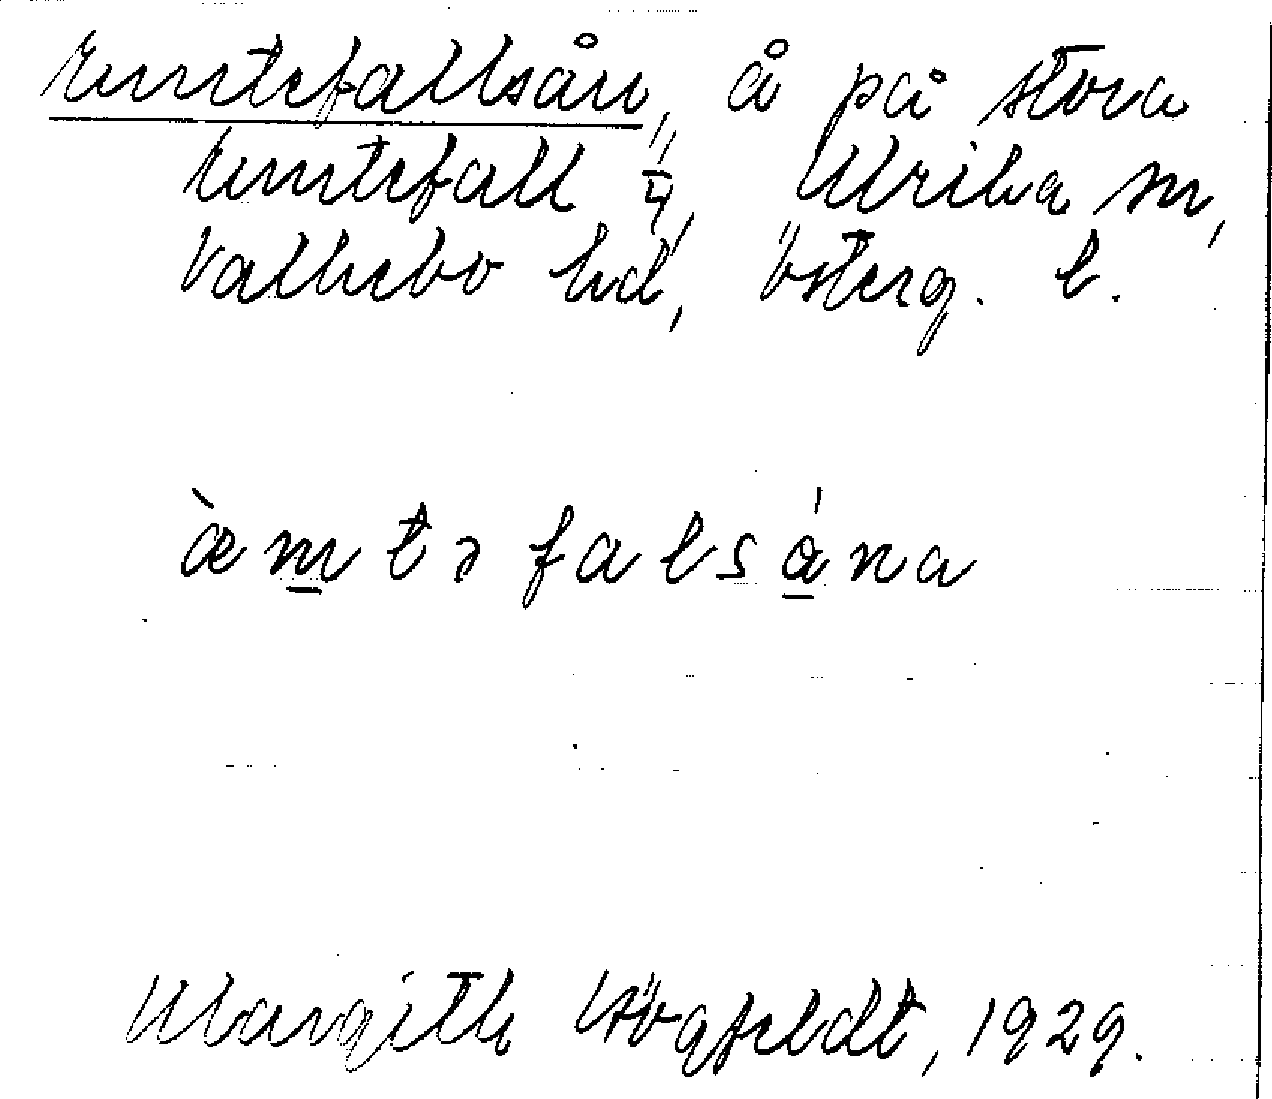 Emtefallsån, å på Stora
Emtefall, Ulrika sn,
Valkebo hd, Österg. l.
æ̀mtəfalsåna
Margith Högfeldt, 1929.